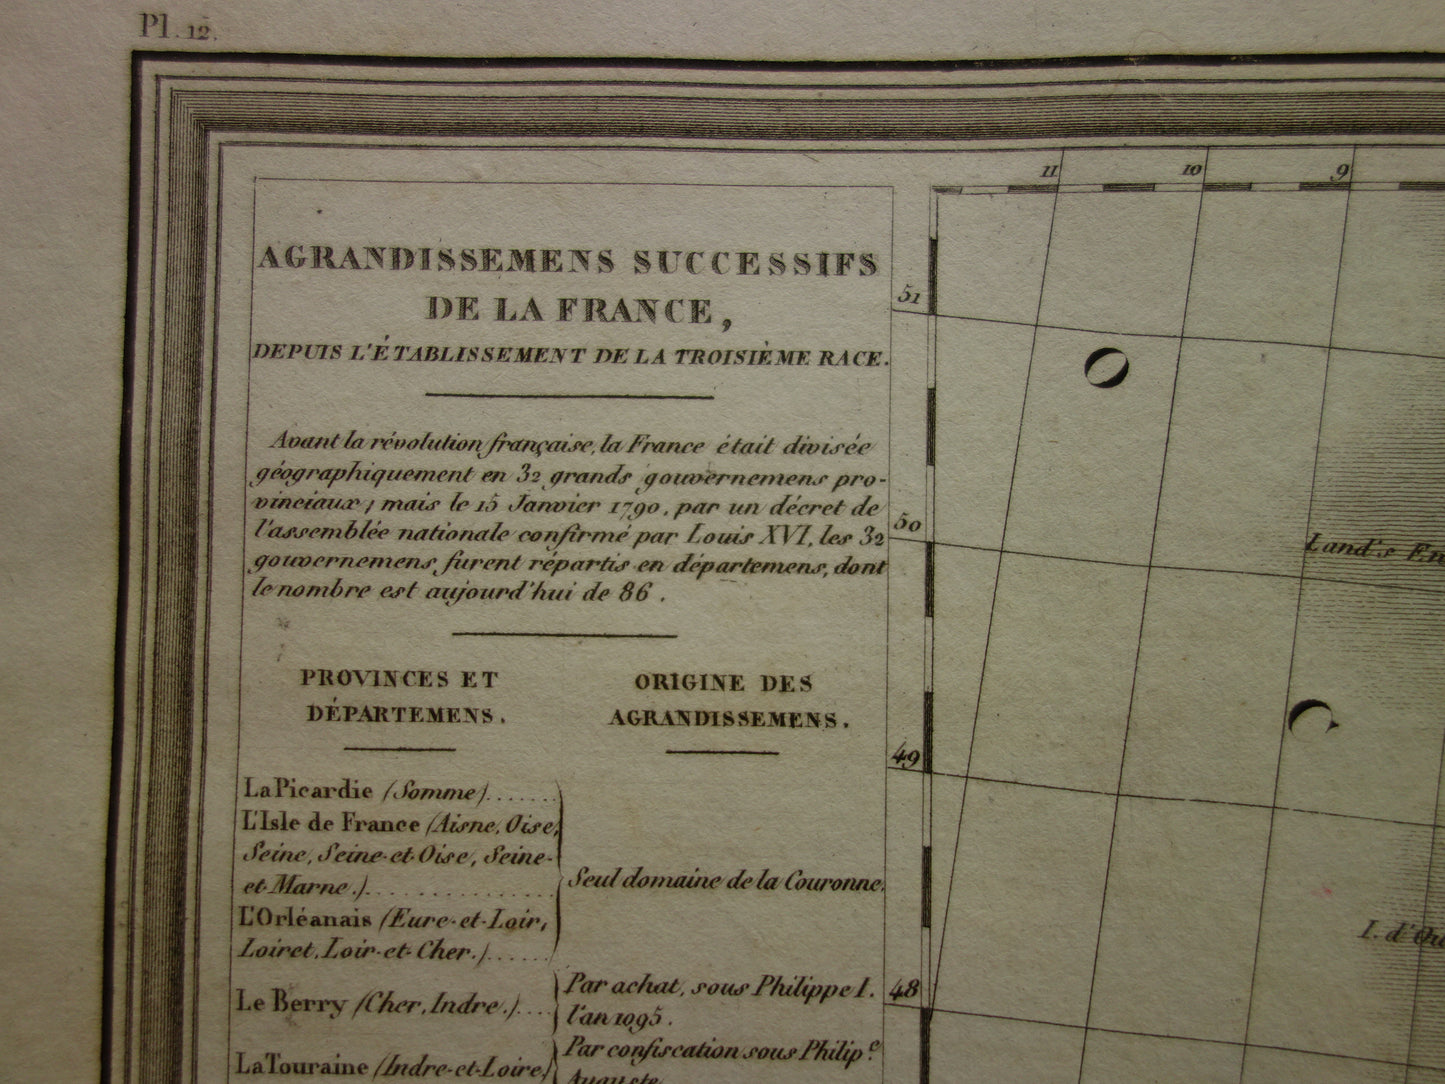 Pl. 12.
AGRANDISSEMENS SUCCESSIFS
DE LA FRANCE,
DEPUIS L'ÉTABLISSEMENT DE LA TROISIÈME RACE.
Avant la révolution française, la France était divisée
géographiquement en 32 grands gouvernemens pro-
vinciaux; mais le 15 Janvier 1790, par un décret de
l'assemblée nationale confirmé par Louis XVI, les 32
gouvernemens, furent répartis en départemens, dont
le nombre est aujourd'hui de 86.
PROVINCES ET
DÉPARTEMENS.
ORIGINE DES
AGRANDISSEMENS.
La Picardie (Somme).......
L'Isle de France (Aisne, Oise,
Seine, Seine-et-Oise, Seine-
et-Marne.)..............
L'Orléanais (Eure-et-Loir,
Loiret, Loir-et-Cher.)......
Seul domaine de la Couronne.
Le Berry (Cher, Indre.)....
Par achat, sous Philippe I.
l'an 1095.
La Touraine (Indre-et-Loire.)
Par confiscation sous Philip.e
Auguste
11 10 9
51
50
49
48
Land's En
I. d'Ou